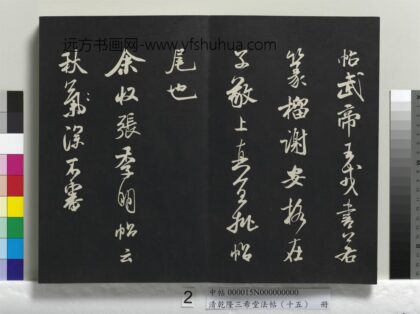 远方书画网-www.yfshuhua.com
帖武帝王戎書若
篆籀謝安格在
子敬上真宜批帖
尾也
余收張季明帖云
秋氣深不審
2
中帖 000015N000000000
清乾隆三希堂法帖(十五) 冊